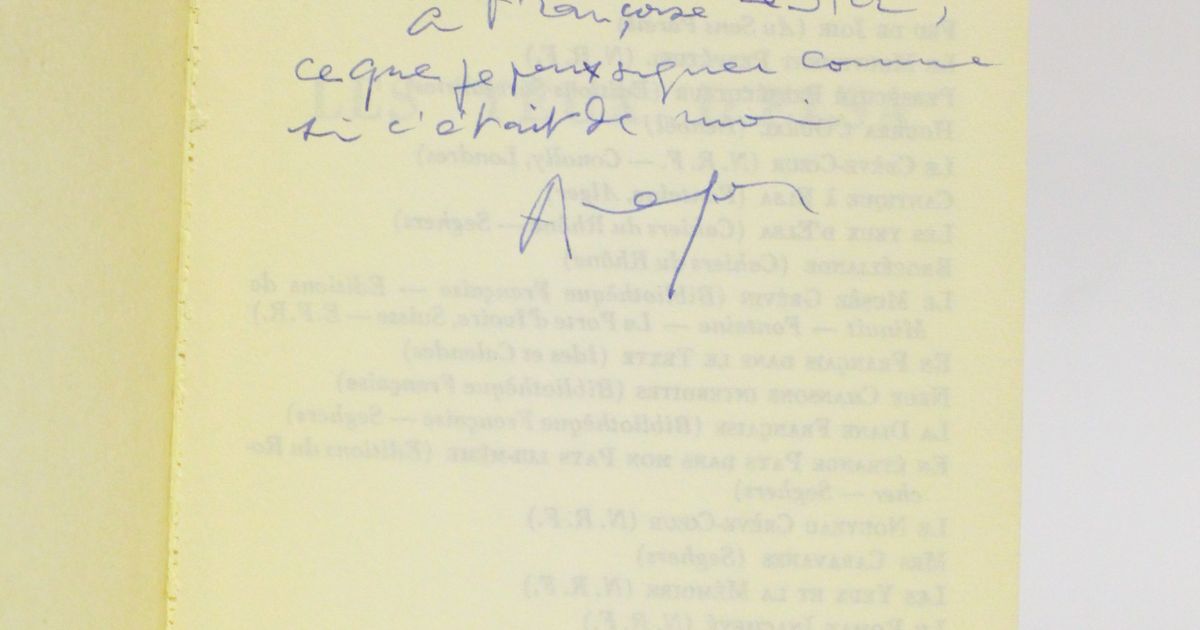 à Françoise
ce que je peux signer comme
si c'était de moi
FEU DE JOIE (Au Sans Pareil)
LE MOUVEMENT PERPÉTUEL (N. R. F.)
HOURRA L'OURAL (Denoël)
LE CRÈVE-CŒUR (N. R. F. — Conolly, Londres)
CANTIQUE À ELSA (Fontaine, Alger)
LES YEUX D'ELSA (Cahiers du Rhône — Seghers)
BROCÉLIANDE (Cahiers du Rhône)
LE MUSÉE GRÉVIN (Bibliothèque Française — Éditions de
Minuit — Fontaine — La Porte d'Ivoire, Suisse — E.F.R.)
EN FRANÇAIS DANS LE TEXTE (Ides et Calendes)
NEUF CHANSONS INTERDITES (Bibliothèque Française)
LA DIANE FRANÇAISE (Bibliothèque Française — Seghers)
EN ÉTRANGE PAYS DANS MON PAYS LUI-MÊME (Éditions du Ro-
cher — Seghers)
LE NOUVEAU CRÈVE-CŒUR (N. R. F.)
MES CARAVANES (Seghers)
LES YEUX ET LA MÉMOIRE (N. R. F.)
LE ROMAN INACHEVÉ (N. R. F.)